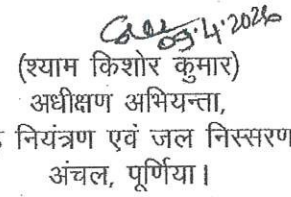 09.4.2026
(श्याम किशोर कुमार)
अधीक्षण अभियन्ता,
नियंत्रण एवं जल निस्सरण
अंचल, पूर्णिया।